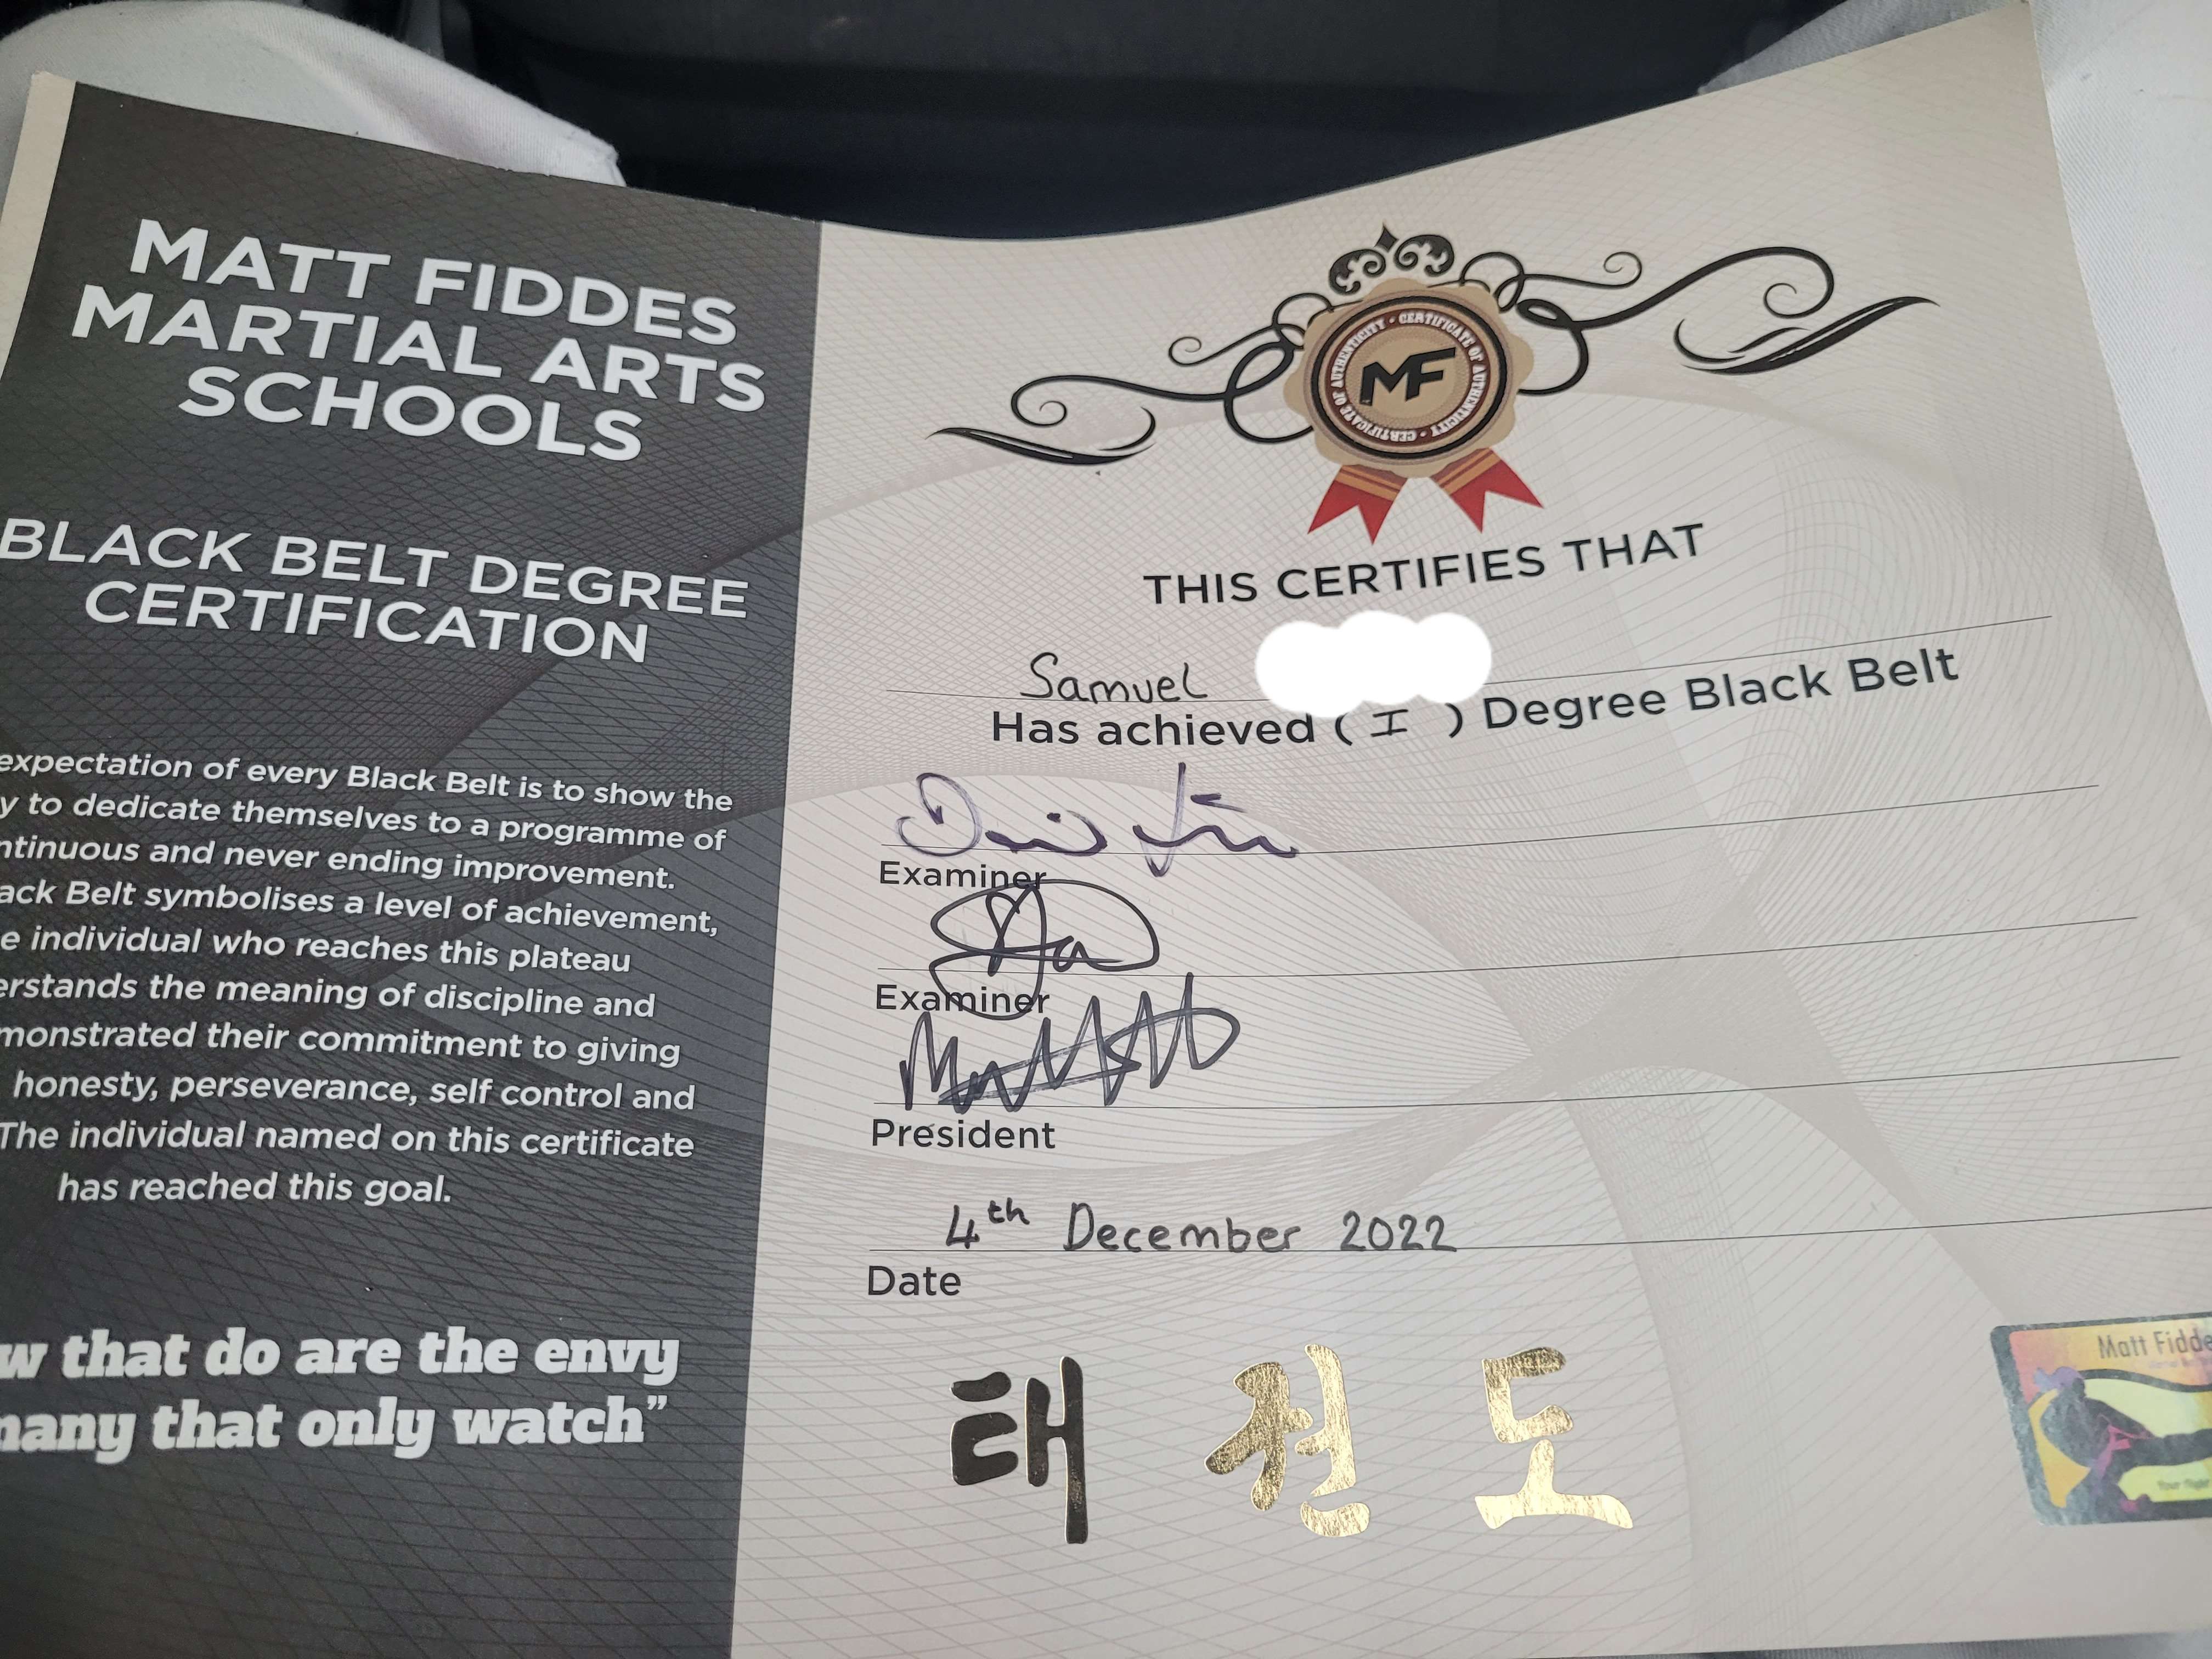 MATT FIDDES
MARTIAL ARTS
SCHOOLS
BLACK BELT DEGREE
CERTIFICATION
expectation of every Black Belt is to show the
y to dedicate themselves to a programme of
ntinuous and never ending improvement.
ack Belt symbolises a level of achievement,
e individual who reaches this plateau
erstands the meaning of discipline and
monstrated their commitment to giving
honesty, perseverance, self control and
The individual named on this certificate
has reached this goal.
w that do are the envy
many that only watch”
CERTIFICATE OF AUTHENTICITY • CERTIFICATE OF AUTHENTICITY •
MF
THIS CERTIFIES THAT
Samuel
Has achieved ( I ) Degree Black Belt
Examiner
Examiner
President
4th December 2022
Date
태 권 도
Matt Fidde